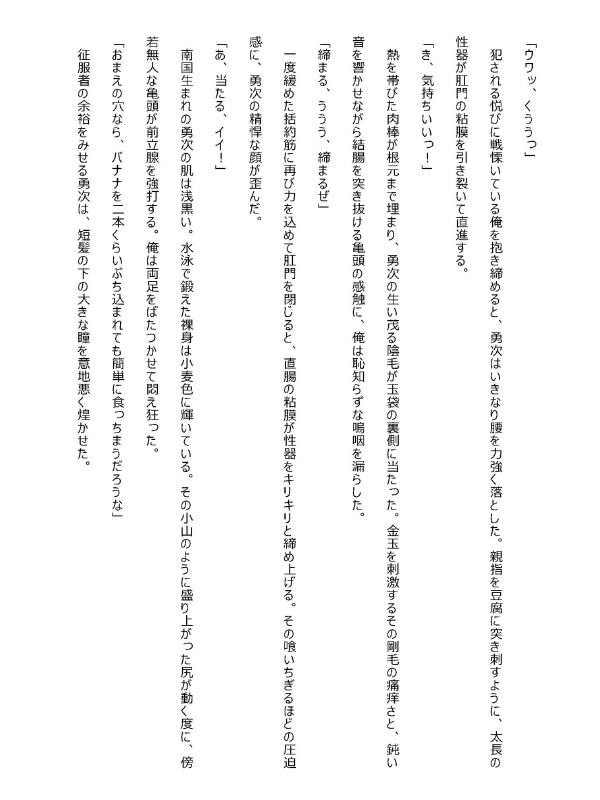 「ウワッ、くううっ」
犯される悦びに戦慄いている俺を抱き締めると、勇次はいきなり腰を力強く落とした。親指を豆腐に突き刺すように、太長の
性器が肛門の粘膜を引き裂いて直進する。
「き、気持ちいいっ！」
熱を帯びた肉棒が根元まで埋まり、勇次の生い茂る陰毛が玉袋の裏側に当たった。金玉を刺激するその剛毛の痛痒さと、鈍い
音を響かせながら結腸を突き抜ける亀頭の感触に、俺は恥知らずな嗚咽を漏らした。
「締まる、ううう、締まるぜ」
一度緩めた括約筋に再び力を込めて肛門を閉じると、直腸の粘膜が性器をキリキリと締め上げる。その喰いちぎるほどの圧迫
感に、勇次の精悍な顔が歪んだ。
「あ、当たる、イイ！」
南国生まれの勇次の肌は浅黒い。水泳で鍛えた裸身は小麦色に輝いている。その小山のように盛り上がった尻が動く度に、傍
若無人な亀頭が前立腺を強打する。俺は両足をばたつかせて悶え狂った。
「おまえの穴なら、バナナを二本くらいぶち込まれても簡単に食っちまうだろうな」
征服者の余裕をみせる勇次は、短髪の下の大きな瞳を意地悪く煌かせた。